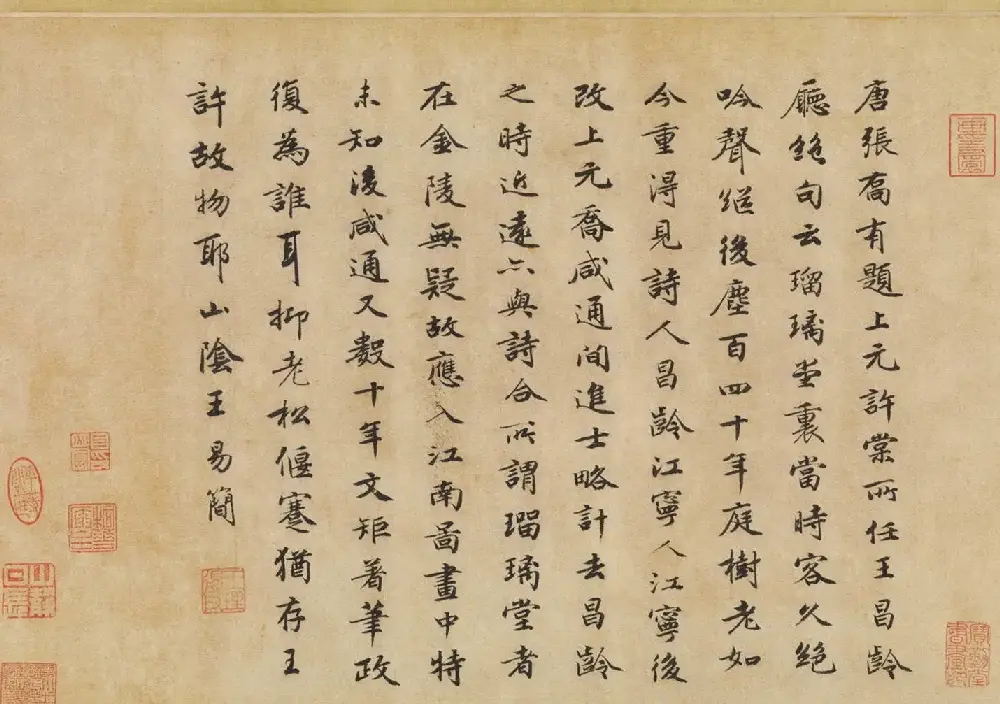 唐張喬有題上元許棠所任王昌齡
廳絶句云瑠璃堂裏當時客久絶
吟聲繼後塵百四十年庭樹老如
今重淂見詩人昌齡江寧人江寧後
改上元喬咸通間進士略計去昌齡
之時近遠亦與詩合所謂瑠璃堂者
在金陵無疑故應入江南啚畫中特
未知後咸通又數十年文矩著筆政
復為誰耳抑老松偃蹇猶存王
許故物耶山陰王易簡